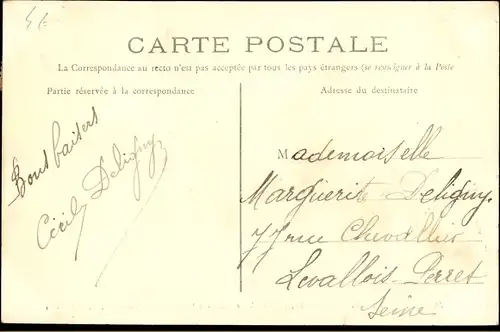 CARTE POSTALE
La Correspondance au recto n'est pas acceptée par tous les pays étrangers (se renseigner à la Poste
Partie réservée à la correspondance
Bons baisers
Cécily Deligny
Adresse du destinataire
Mademoiselle
Marguerite Deligny.
77 rue Chevallier
Levallois-Perret
Seine